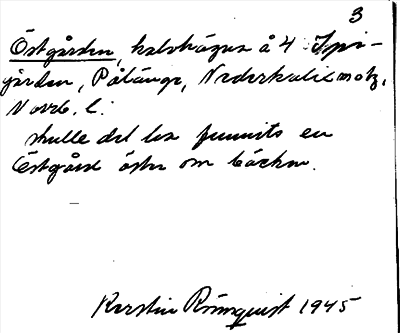 3
Östgården, kalvhägna å 4 Spi-
gården, Pålänge, Nederkalix
Norrb. l.
skulle det ha funnits en
Östgård öster om bäcken.
Kerstin Rönnquist 1945